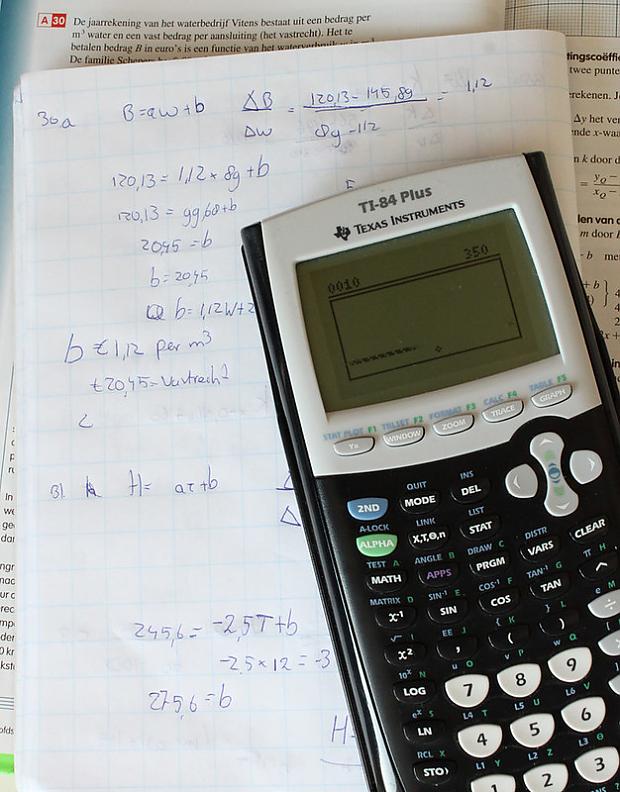 A 30 De jaarrekening van het waterbedrijf Vitens bestaat uit een bedrag per
m³ water en een vast bedrag per aansluiting (het vastrecht). Het te
betalen bedrag B in euro's is een functie van het
De familie
tingscoëffi
twee punte
erekenen. J
Δy het ver
nde x-waa
n k door d
len van
m door
30a B=aw+b ΔB/ΔW = 120,13-145,89 / 89-112 = 1,12
120,13 = 1,12 × 89+b
120,13 = 99,68+b
20,45 = b
b = 20,45
b = 1,12W+2
b €1,12 per m³
€20,45 = Vastrecht
31 H= aT+b
245,6 = -2,5T+b
-2,5×12 = -3
275,6 = b
H=
TI-84 Plus
TEXAS INSTRUMENTS
0010 350
STAT PLOT F1 TBLSET F2 FORMAT F3 CALC F4 TABLE F5
Y= WINDOW ZOOM TRACE GRAPH
QUIT INS
2ND MODE DEL
A-LOCK LINK LIST
ALPHA X,T,Θ,n STAT
TEST A ANGLE B DRAW C DISTR
MATH APPS PRGM VARS CLEAR
MATRIX D SIN-1 E COS-1 F TAN-1 G π H
x-1 SIN COS TAN ^
√ I EE J { K } L e M
x² , ( ) ÷
10ˣ N u O v P w Q
LOG 7 8 9
eˣ S L4 T L5 U L6 V
LN 4 5 6
RCL X L1 Y L2 Z L3 θ
STO› 1 2 3